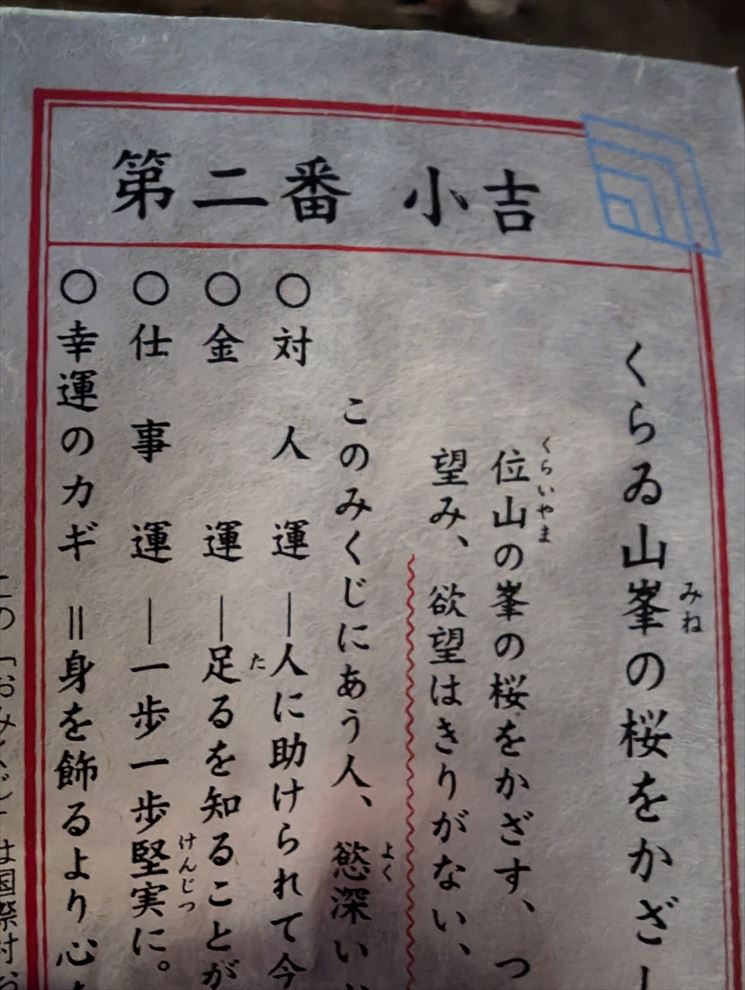 第二番 小吉
くらゐ山峯の桜をかざし
みね
位山の峯の桜をかざす、つ
くらいやま
望み、欲望はきりがない、
このみくじにあう人、慾深い
よく
○対人運―人に助けられて今
○金運―足るを知ることが
た
○仕事運―一歩一歩堅実に。
けんじつ
○幸運のカギ=身を飾るより心
この「おみくじ」は国際村お